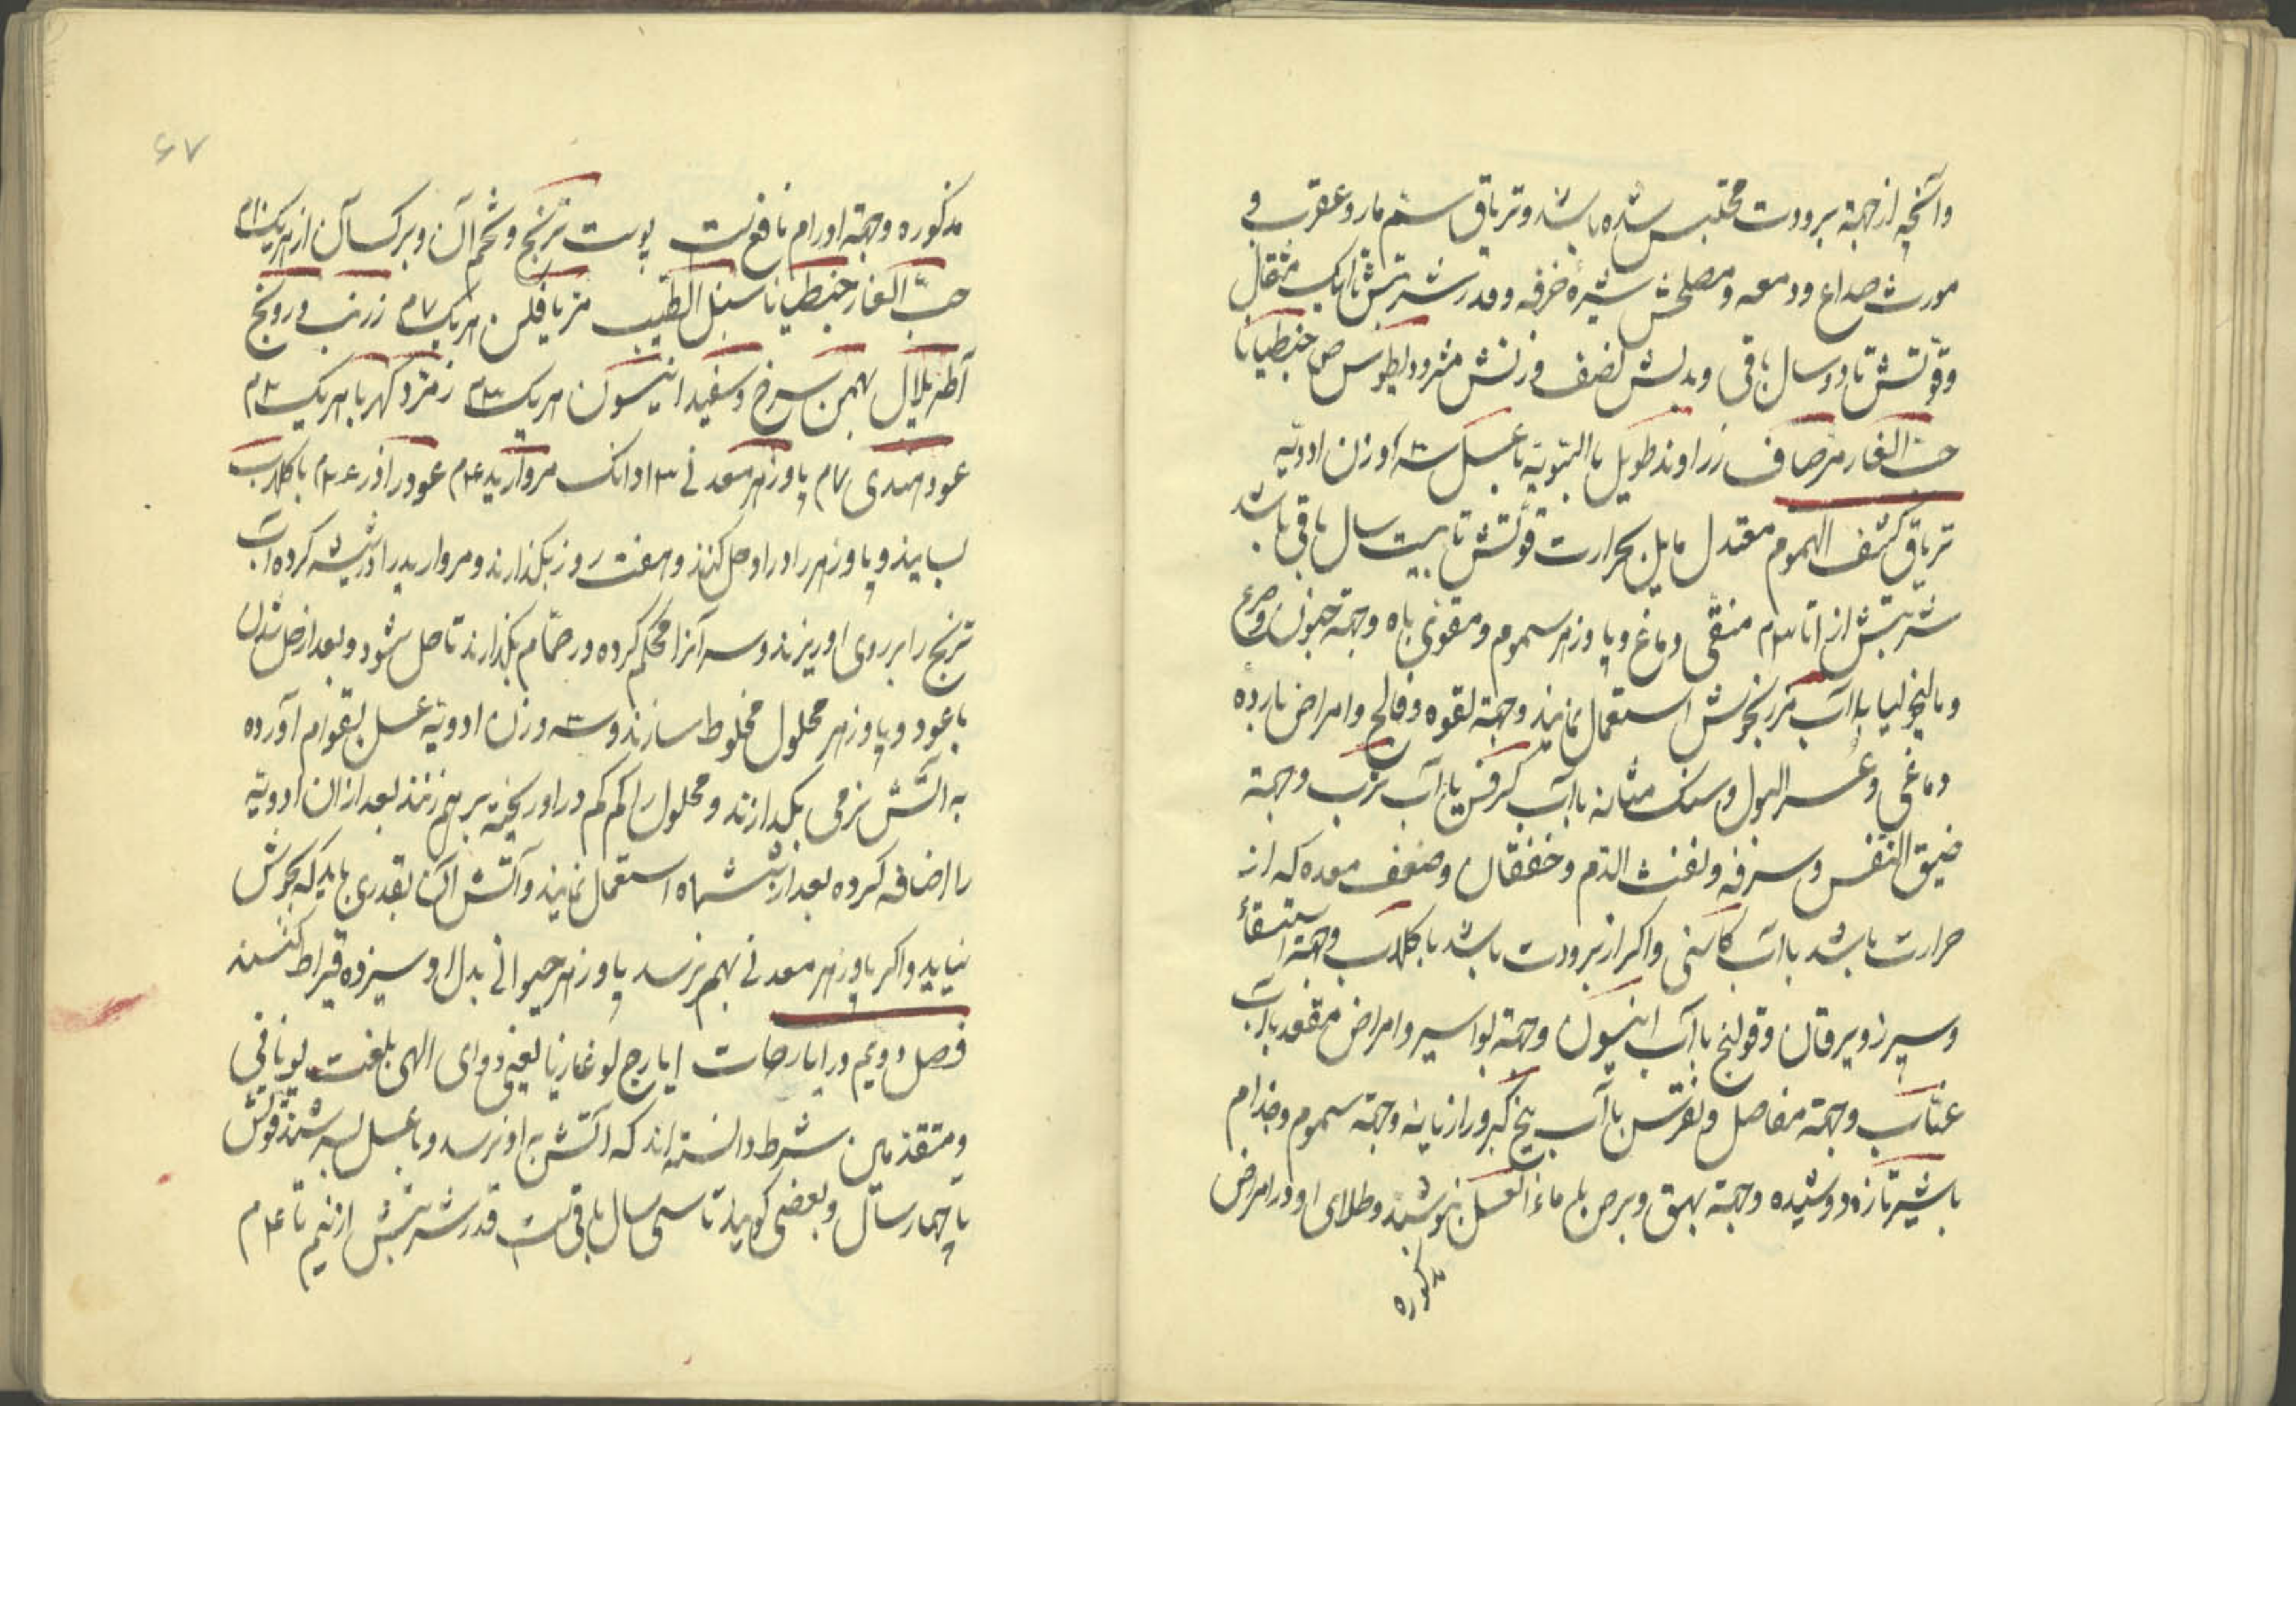 وآنچه از جهة برودت محتبس شده باشد وتریاق سم مار وعقرب و
مورث صداع ودمعه ومصلحش شیره خرفه وقدر شربتش تا یک مثقال
وقوّتش تا دو سال باقی وبدلش نصف وزنش مثرودیطوس ص جنطیانا
حبّ الغار مرّ صاف زراوند طویل بالسّویّه با عسل سه وزن ادویّه
تریاق کشف الهموم معتدل مایل بحرارت قوّتش تا بیست سال باقی باشد
شربتش از ۱ تا ۳م منقّی دماغ وپاوزهر سموم ومقوّی باه وجهة جنون وصرع
ومالیخولیا با آب مرزنجوش استعمال نمایند وجهة لقوه وفالج وامراض بارده
دماغی وعسر البول وسنک مثانه با آب کرفس یا آب ترب وجهة
ضیق النفس وسرفه ونفث الدّم وخفقان وضعف معده که از
حرارت باشد با آب کاسنی واکر از برودت باشد با کلاب وجهة استسقاء
وسپرز ویرقان وقولنج با آب انیسون وجهة بواسیر وامراض مقعد با آب
عنّاب وجهة مفاصل ونقرس با آب بیخ کبر ورازیانه وجهة سموم وجذام
با شیر تازه دوشیده وجهة بهق وبرص با ماء العسل بنوشند وطلای او در امراض
مذکوره
۶۷
مذکوره وجهة اورام نافع است پوست ترنج وتخم آن وبرک آن از هریک ۱۰م
حبّ الغار جنطیانا سنبل الطیب مرّ یافلن هریک ۷م زرنب درونج
آطریلال بهمن سرخ وسفید انیسون هریک ۳م زمرّد کهربا هریک ۲م
عود هندی ۷م پاوزهر معدنی ۱۳ دانک مروارید ۴م عود را در ۲۴م با کلاب
بسایند وپاوزهر را در او حل کنند وهفت روز بکذارند ومروارید را در شیشه کرده آب
ترنج را بر روی او ریزند وسر آنرا محکم کرده در حمّام بکذارند تا حل شود وبعد از حل شدن
با عود وپاوزهر محلول مخلوط سازند وسه وزن ادویّه عسل بقوام آورده
به آتش نرمی بکدازند ومحلول را کم کم در او ریخته برهم زنند بعد از ان ادویّه
را اضافه کرده بعد از شش ماه استعمال نمایند وآتش آن بقدری باید که بجوش
نیاید واکر پاوزهر معدنی بهم نرسد پاوزهر حیوانی بدل او سیزده قیراط کنند
فصل دویم در ایارجات ایارج لوغاریا یعنی دوای الهی بلغت یونانی
ومتقدّمین شرط دانسته اند که آتش به او نرسد وبا عسل بسرشند قوّتش
تا چهار سال وبعضی کویند تا سی سال باقی است قدر شربتش از نیم تا ۴م